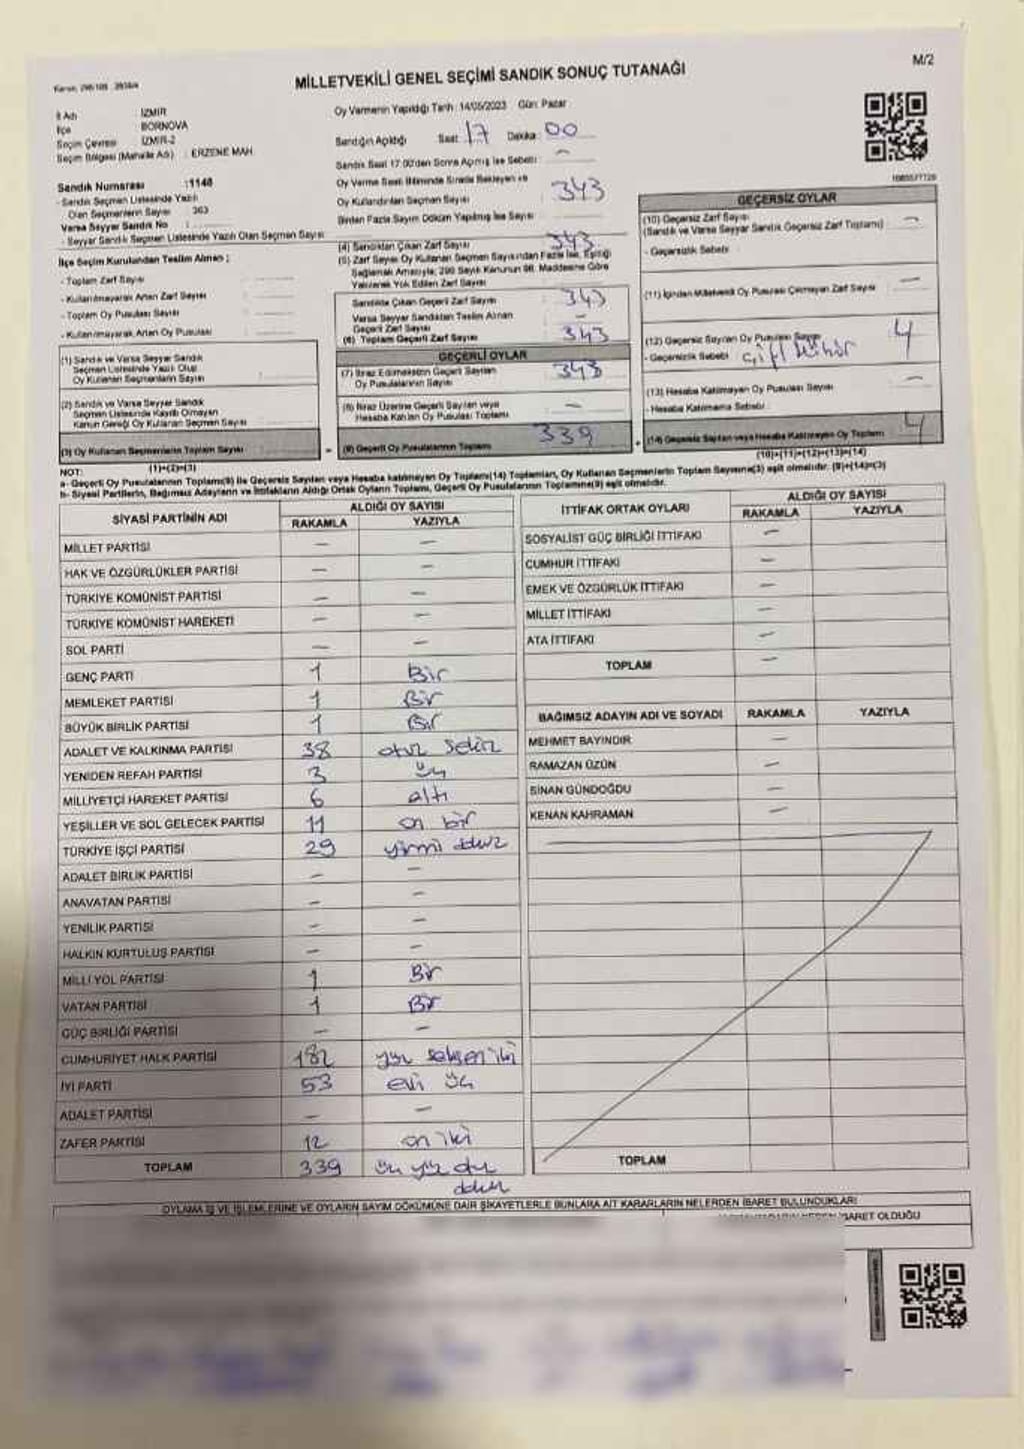 M/2
MİLLETVEKİLİ GENEL SEÇİMİ SANDIK SONUÇ TUTANAĞI
İl Adı : İZMİR
İlçe BORNOVA
Seçim Çevresi İZMİR-2
Seçim Bölgesi (Mahalle Adı) : ERZENE MAH.
Oy Vermenin Yapıldığı Tarih :14/05/2023 Gün: Pazar
Sandığın Açıldığı Saat: 17 Dakika: 00
Sandık Saat 17.00'den Sonra Açılmış İse Sebebi: -
Sandık Numarası :1148
- Sandık Seçmen Listesinde Yazılı
Olan Seçmenlerin Sayısı 363
Varsa Seyyar Sandık No :
- Seyyar Sandık Seçmen Listesinde Yazılı Olan Seçmen Sayısı
İlçe Seçim Kurulundan Teslim Alınan ;
- Toplam Zarf Sayısı
- Kullanılmayarak Artan Zarf Sayısı
- Toplam Oy Pusulası Sayısı
- Kullanılmayarak Artan Oy Pusulası
(1) Sandık ve Varsa Seyyar Sandık
Seçmen Listesinde Yazılı Olup
Oy Kullanan Seçmenlerin Sayısı
(2) Sandık ve Varsa Seyyar Sandık
Seçmen Listesinde Kayıtlı Olmayan
Kanun Gereği Oy Kullanan Seçmen Sayısı
(3) Oy Kullanan Seçmenlerin Toplam Sayısı
(1)+(2)=(3)
Oy Verme Saati Bitiminde Sırada Bekleyen ve
Oy Kullandırılan Seçmen Sayısı 343
Birden Fazla Sayım Döküm Yapılmış İse Sayısı
(4) Sandıktan Çıkan Zarf Sayısı 343
(5) Zarf Sayısı Oy Kullanan Seçmen Sayısından Fazla İse, Eşitliği
Sağlamak Amacıyla; 298 Sayılı Kanunun 98. Maddesine Göre
Yakılarak Yok Edilen Zarf Sayısı
Sandıkta Çıkan Geçerli Zarf Sayısı 343
Varsa Seyyar Sandıktan Teslim Alınan
Geçerli Zarf Sayısı -
(6) Toplam Geçerli Zarf Sayısı 343
GEÇERLİ OYLAR
(7) İtiraz Edilmeksizin Geçerli Sayılan
Oy Pusulalarının Sayısı 343
(8) İtiraz Üzerine Geçerli Sayılan veya
Hesaba Katılan Oy Pusulası Toplamı -
(9) Geçerli Oy Pusulalarının Toplamı 339
GEÇERSİZ OYLAR
(10) Geçersiz Zarf Sayısı -
(Sandık ve Varsa Seyyar Sandık Geçersiz Zarf Toplamı)
- Geçersizlik Sebebi
(11) İçinden Milletvekili Oy Pusulası Çıkmayan Zarf Sayısı -
(12) Geçersiz Sayılan Oy Pusulası Sayısı 4
- Geçersizlik Sebebi Çift Mühür
(13) Hesaba Katılmayan Oy Pusulası Sayısı -
- Hesaba Katılmama Sebebi
(14) Geçersiz Sayılan veya Hesaba Katılmayan Oy Toplamı 4
(10)+(11)+(12)+(13)=(14)
NOT:
a- Geçerli Oy Pusulalarının Toplamı(9) ile Geçersiz Sayılan veya Hesaba katılmayan Oy Toplamı(14) Toplamları, Oy Kullanan Seçmenlerin Toplam Sayısına(3) eşit olmalıdır. (9)+(14)=(3)
b- Siyasi Partilerin, Bağımsız Adayların ve İttifakların Aldığı Ortak Oyların Toplamı, Geçerli Oy Pusulalarının Toplamına(9) eşit olmalıdır.
SİYASİ PARTİNİN ADI ALDIĞI OY SAYISI
RAKAMLA YAZIYLA
MİLLET PARTİSİ - -
HAK VE ÖZGÜRLÜKLER PARTİSİ - -
TÜRKİYE KOMÜNİST PARTİSİ - -
TÜRKİYE KOMÜNİST HAREKETİ - -
SOL PARTİ - -
GENÇ PARTİ 1 Bir
MEMLEKET PARTİSİ 1 Bir
BÜYÜK BİRLİK PARTİSİ 1 Bir
ADALET VE KALKINMA PARTİSİ 38 otuz sekiz
YENİDEN REFAH PARTİSİ 3 üç
MİLLİYETÇİ HAREKET PARTİSİ 6 altı
YEŞİLLER VE SOL GELECEK PARTİSİ 11 on bir
TÜRKİYE İŞÇİ PARTİSİ 29 yirmi dokuz
ADALET BİRLİK PARTİSİ - -
ANAVATAN PARTİSİ - -
YENİLİK PARTİSİ - -
HALKIN KURTULUŞ PARTİSİ - -
MİLLİ YOL PARTİSİ 1 Bir
VATAN PARTİSİ 1 Bir
GÜÇ BİRLİĞİ PARTİSİ - -
CUMHURİYET HALK PARTİSİ 182 yüz seksen iki
İYİ PARTİ 53 elli üç
ADALET PARTİSİ - -
ZAFER PARTİSİ 12 on iki
TOPLAM 339 üç yüz otuz
dokuz
İTTİFAK ORTAK OYLARI ALDIĞI OY SAYISI
RAKAMLA YAZIYLA
SOSYALİST GÜÇ BİRLİĞİ İTTİFAKI -
CUMHUR İTTİFAKI -
EMEK VE ÖZGÜRLÜK İTTİFAKI -
MİLLET İTTİFAKI -
ATA İTTİFAKI -
TOPLAM -
BAĞIMSIZ ADAYIN ADI VE SOYADI RAKAMLA YAZIYLA
MEHMET BAYINDIR -
RAMAZAN ÜZÜN -
SİNAN GÜNDOĞDU -
KENAN KAHRAMAN -
TOPLAM
OYLAMA İŞ VE İŞLEMLERİNE VE OYLARIN SAYIM DÖKÜMÜNE DAİR ŞİKAYETLERLE BUNLARA AİT KARARLARIN NELERDEN İBARET BULUNDUKLARI